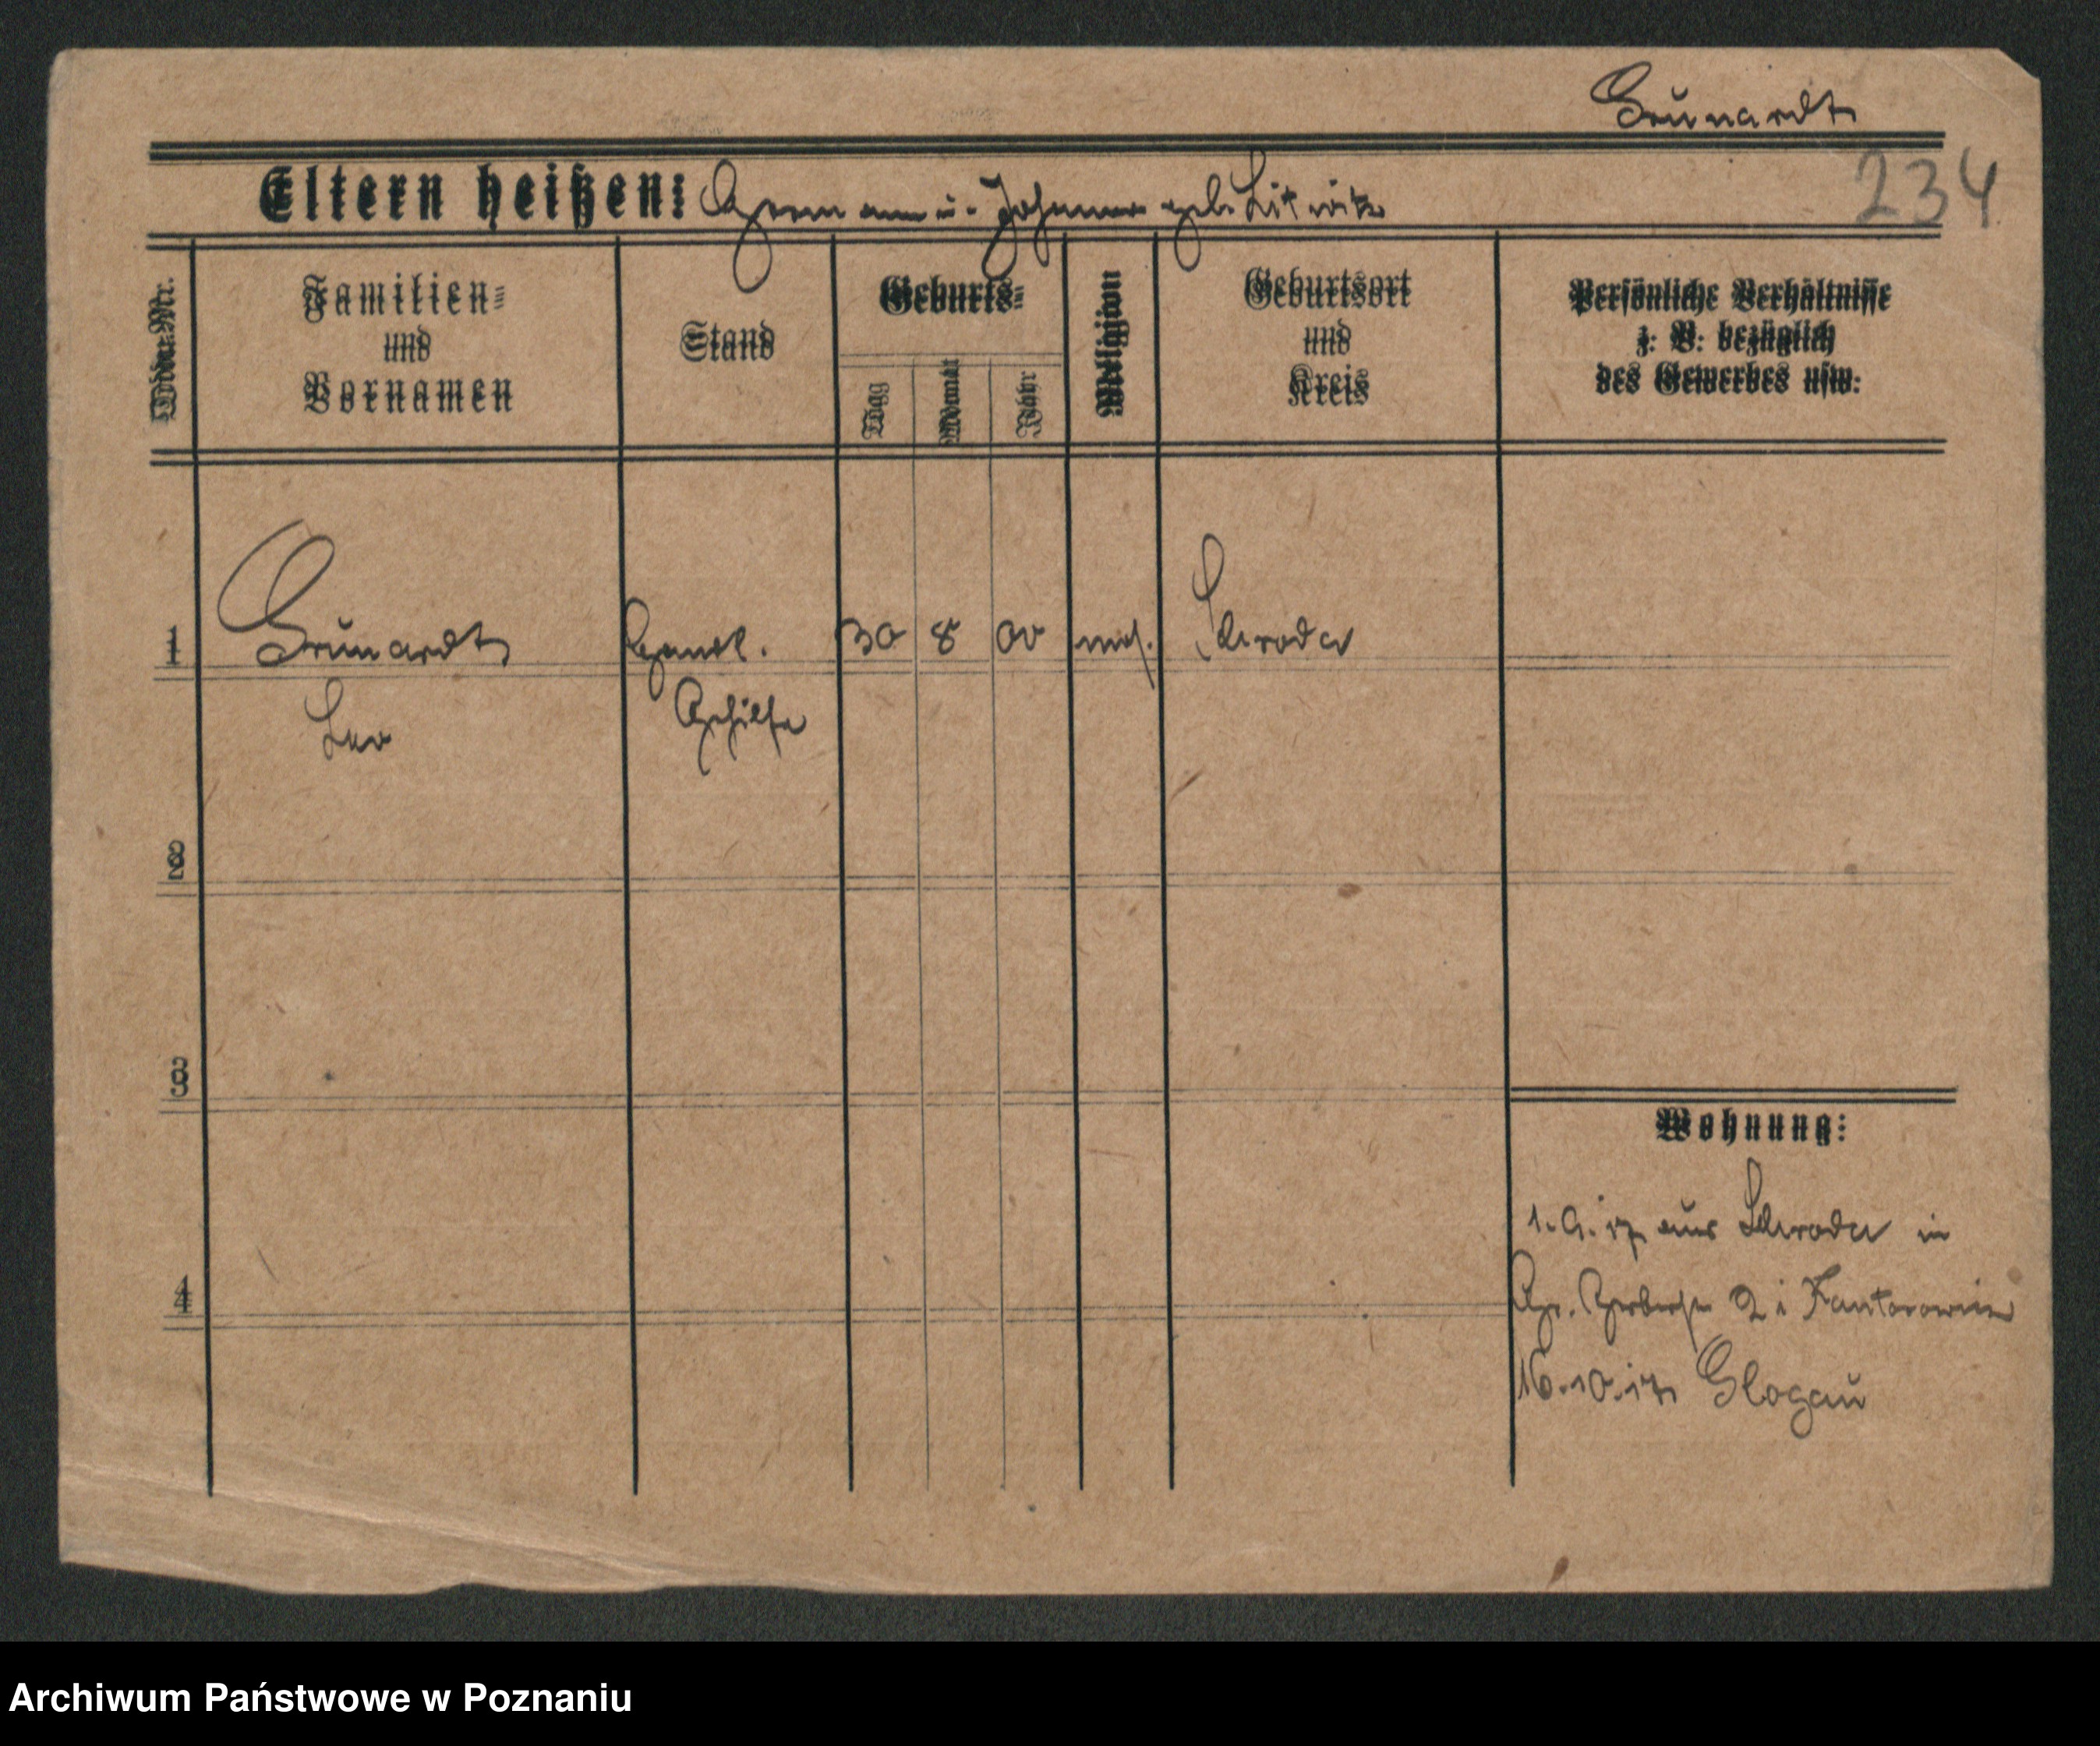 Grünardt
234
Eltern heißen: Hermann u. Johanna geb. Litwitz
Lfde. Nr.
Familien-
und
Vornamen
Stand
Geburts-
Tag
Monat
Jahr
Religion
Geburtsort
und
Kreis
Persönliche Verhältnisse
z. B. bezüglich
des Gewerbes usw.
1 Grünardt Handl. 30 8 00 mos. Schroda
Leo Gehilfe
2
3
4
Wohnung:
1. 9. 17 aus Schroda in
Gr. Gerberstr 2 i Kantorowicz
16.10.17 Glogau
Archiwum Państwowe w Poznaniu